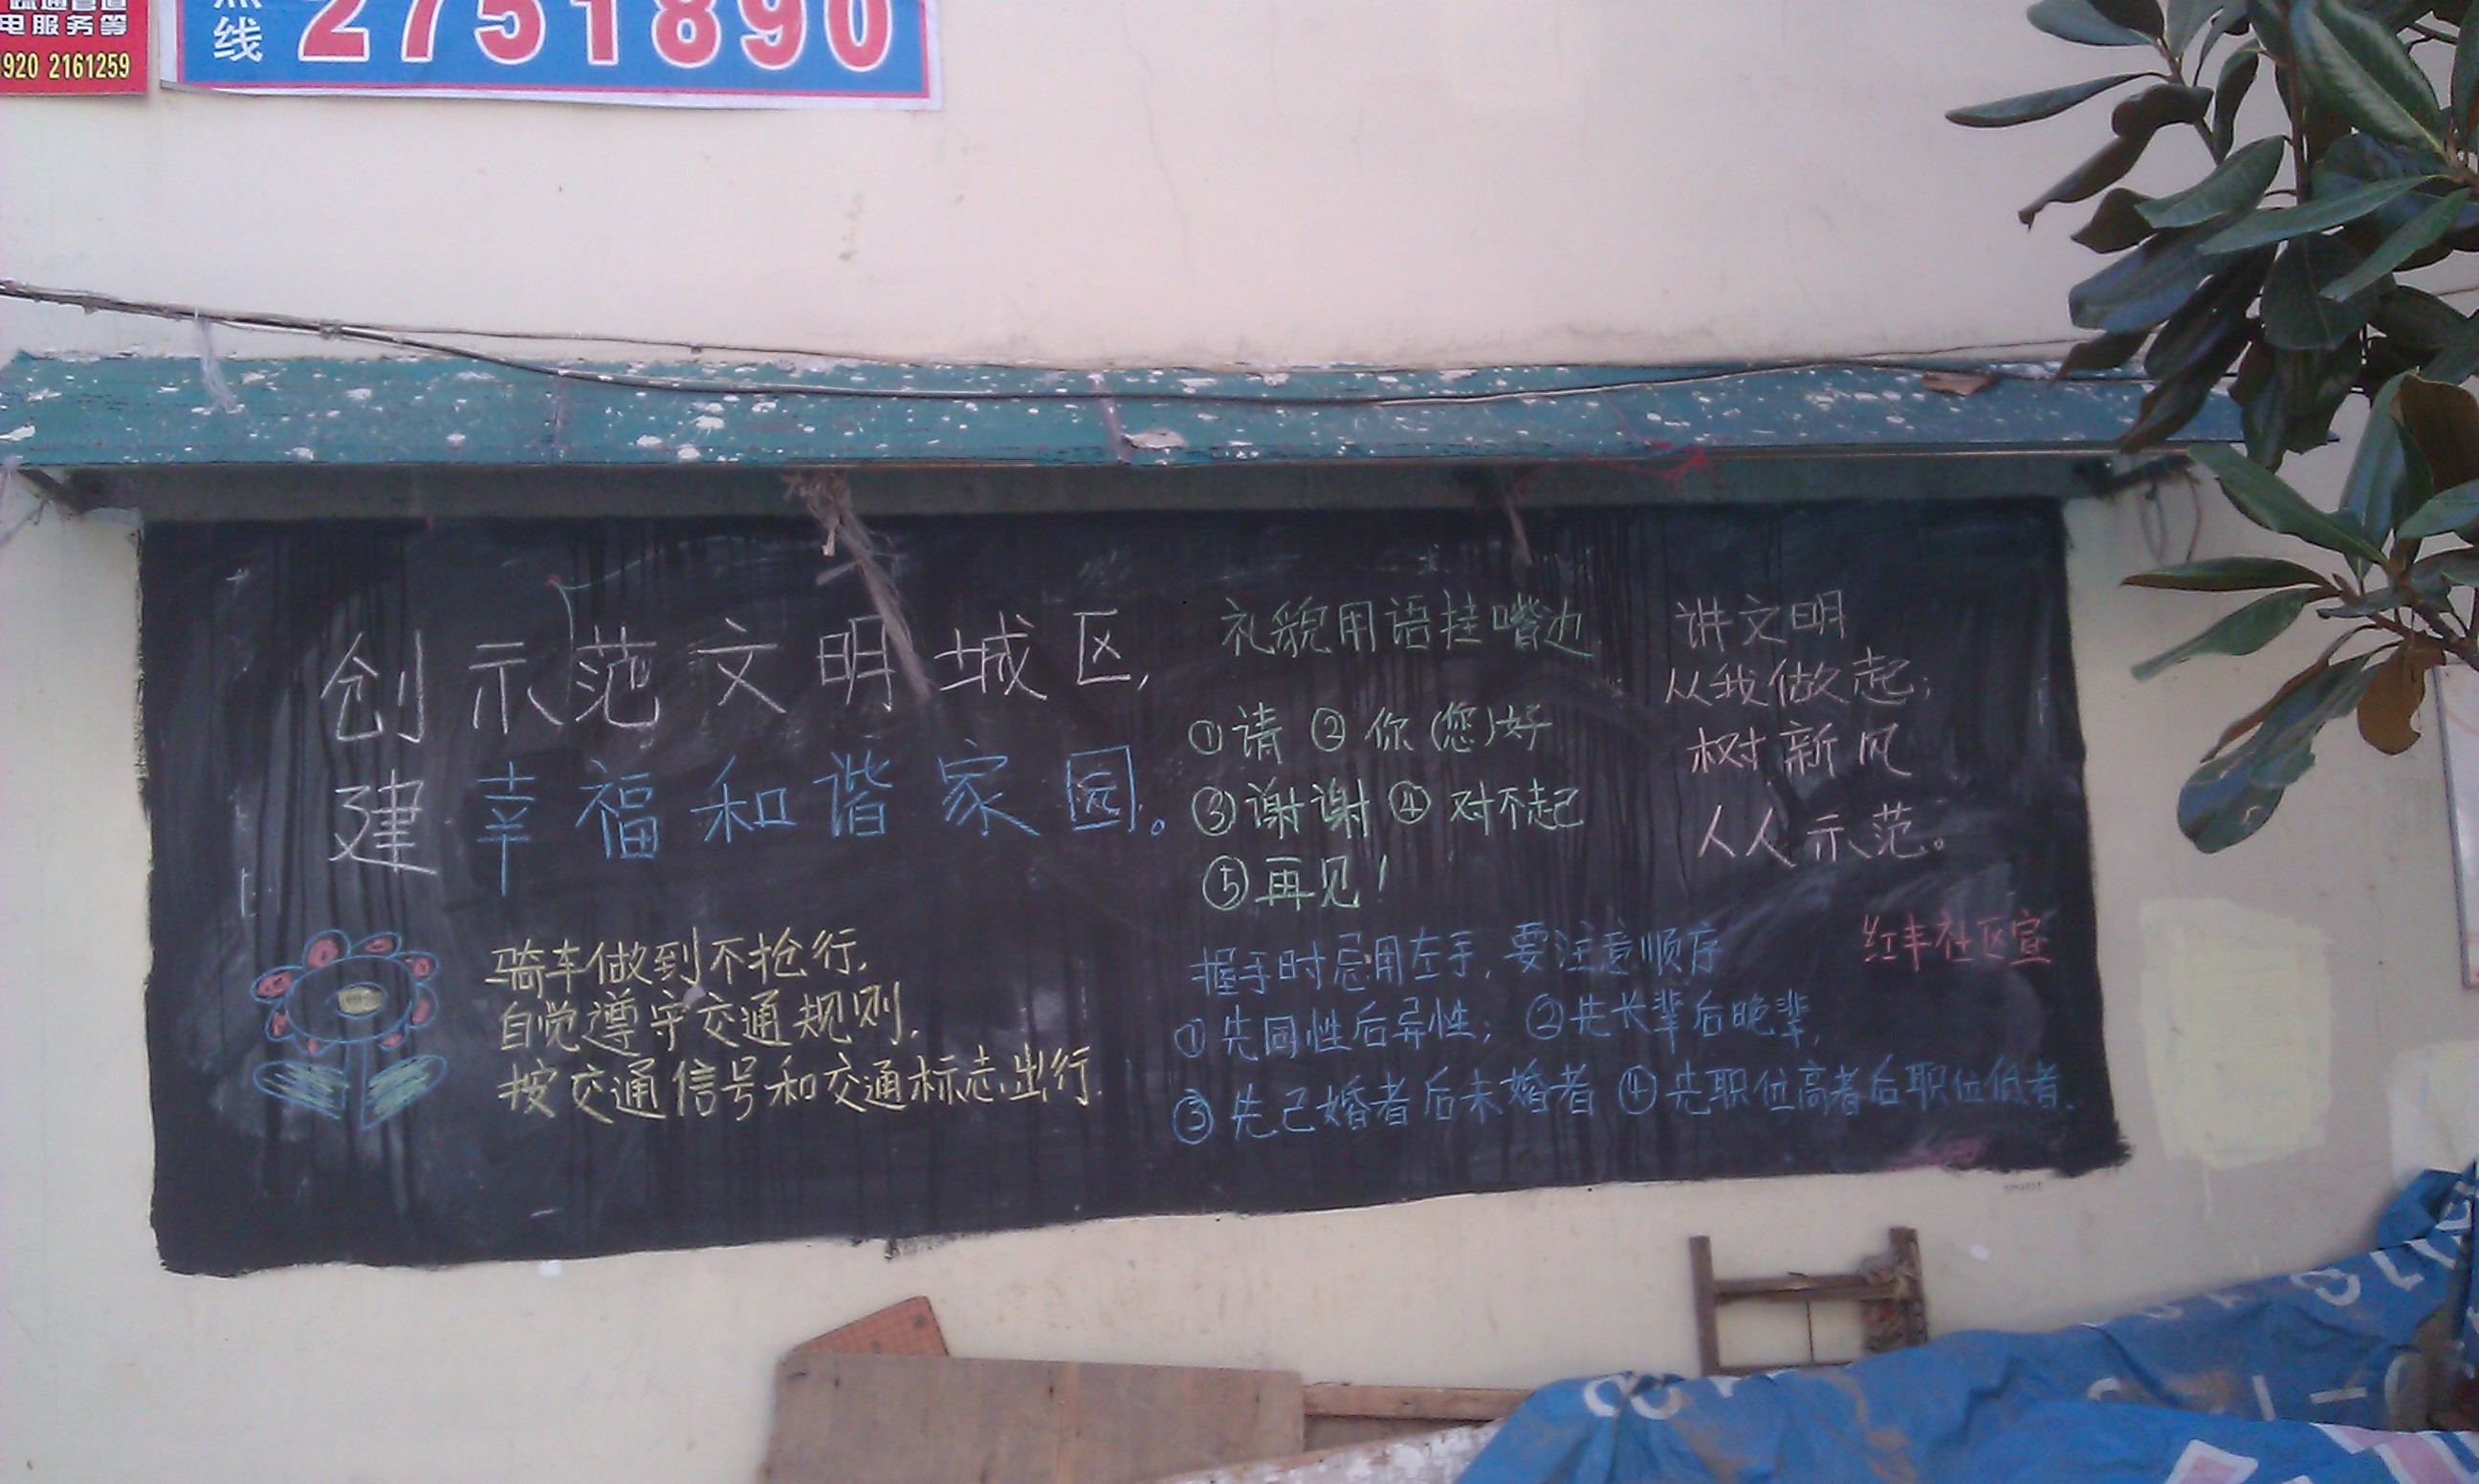 疏通管道
电服务等
920 2161259
热线 2751890
创示范文明城区,
建幸福和谐家园。
骑车做到不抢行,
自觉遵守交通规则,
按交通信号和交通标志出行.
礼貌用语挂嘴边
①请 ②你(您)好
③谢谢 ④对不起
⑤再见!
讲文明
从我做起;
树新风
人人示范。
红丰社区宣
握手时忌用左手,要注意顺序
①先同性后异性; ②先长辈后晚辈,
③先已婚者后未婚者 ④先职位高者后职位低者.